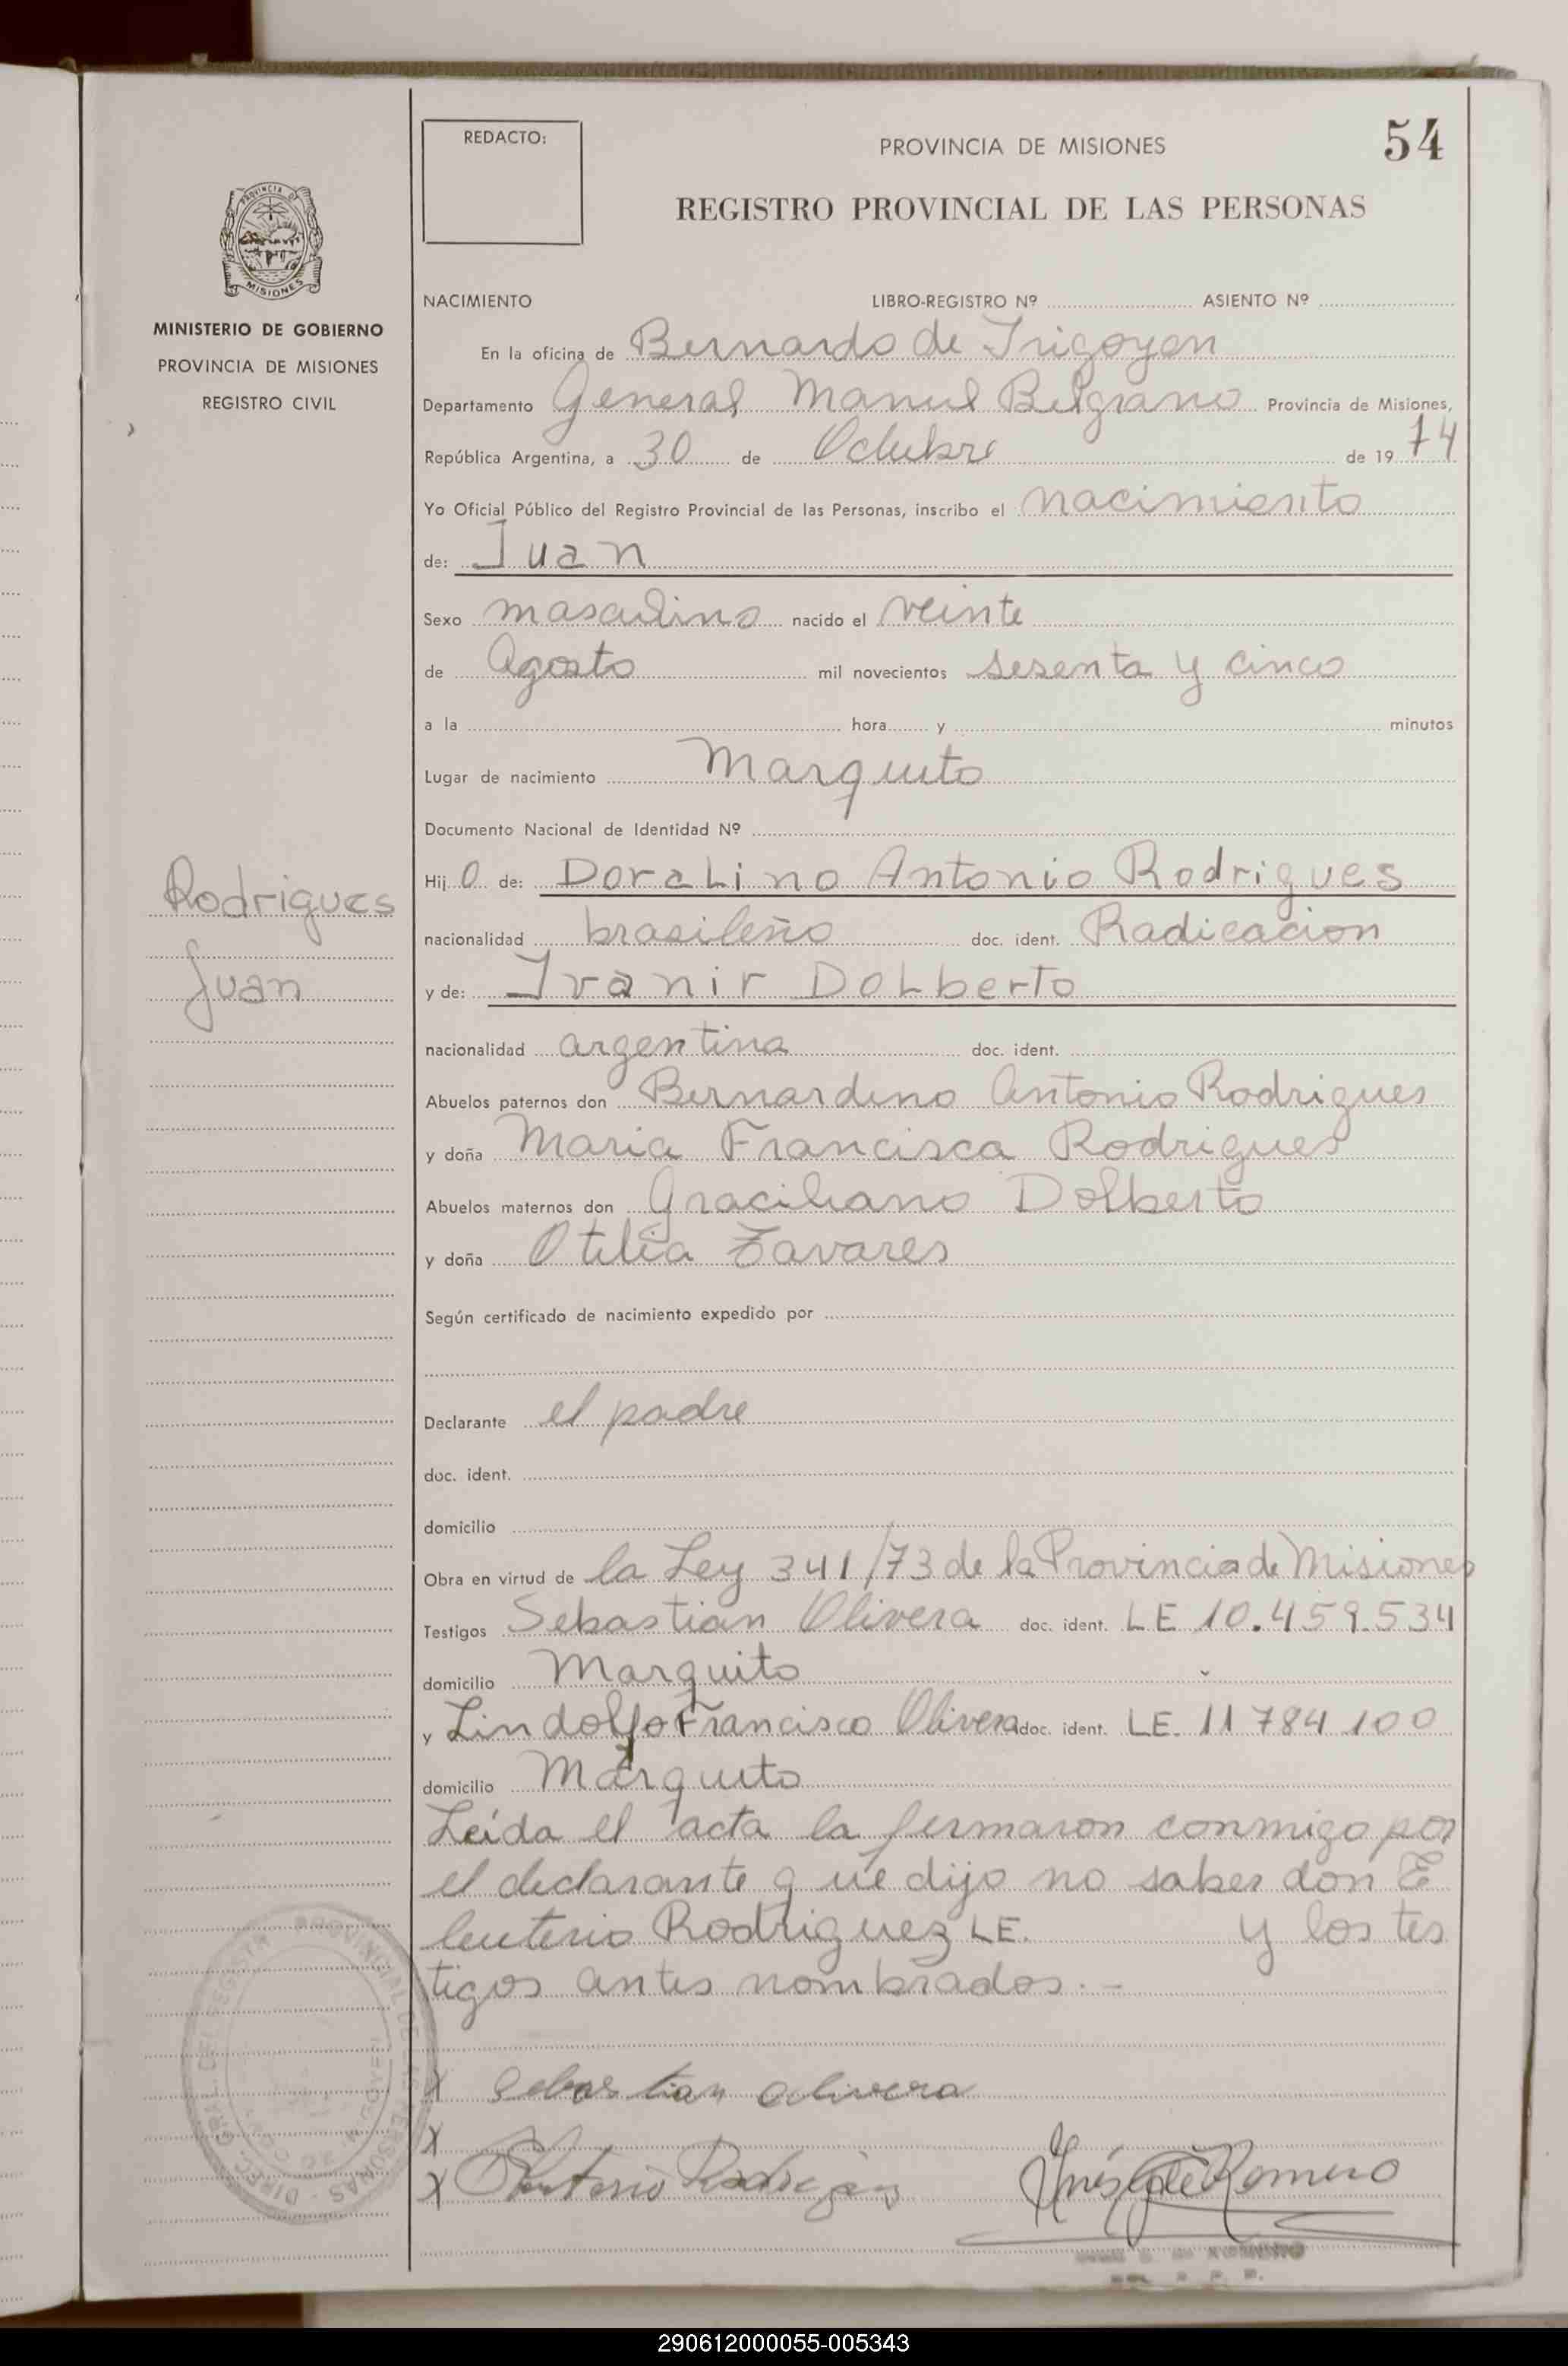 REDACTO:
PROVINCIA DE MISIONES
54
REGISTRO PROVINCIAL DE LAS PERSONAS
PROVINCIA DE
MISIONES
MINISTERIO DE GOBIERNO
PROVINCIA DE MISIONES
REGISTRO CIVIL
NACIMIENTO LIBRO-REGISTRO Nº ASIENTO Nº
En la oficina de Bernardo de Irigoyen
Departamento General Manuel Belgrano Provincia de Misiones,
República Argentina, a 30 de Octubre de 19 74
Yo Oficial Público del Registro Provincial de las Personas, inscribo el nacimiento
de: Juan
Sexo masculino nacido el veinte
de Agosto mil novecientos sesenta y cinco
a la hora y minutos
Lugar de nacimiento Marquito
Documento Nacional de Identidad Nº
Hij o de: Doralino Antonio Rodrigues
Rodrigues
Juan
nacionalidad brasileño doc. ident. Radicacion
y de: Ivanir Dolberto
nacionalidad argentina doc. ident.
Abuelos paternos don Bernardino Antonio Rodrigues
y doña Maria Francisca Rodrigues
Abuelos maternos don Graciliano Dolberto
y doña Otilia Tavares
Según certificado de nacimiento expedido por
Declarante el padre
doc. ident.
domicilio
Obra en virtud de la Ley 341/73 de la Provincia de Misiones
Testigos Sebastian Olivera doc. ident. LE 10.459.534
domicilio Marquito
y Lindolfo Francisco Olivera doc. ident. LE. 11 784 100
domicilio Marquito
Leída el acta la firmaron conmigo por
el declarante que dijo no saber don E
leuterio Rodriguez LE. y los tes
tigos antes nombrados.-
X Sebastian Olivera
X
X Eleuterio Rodriguez
Romero
290612000055-005343